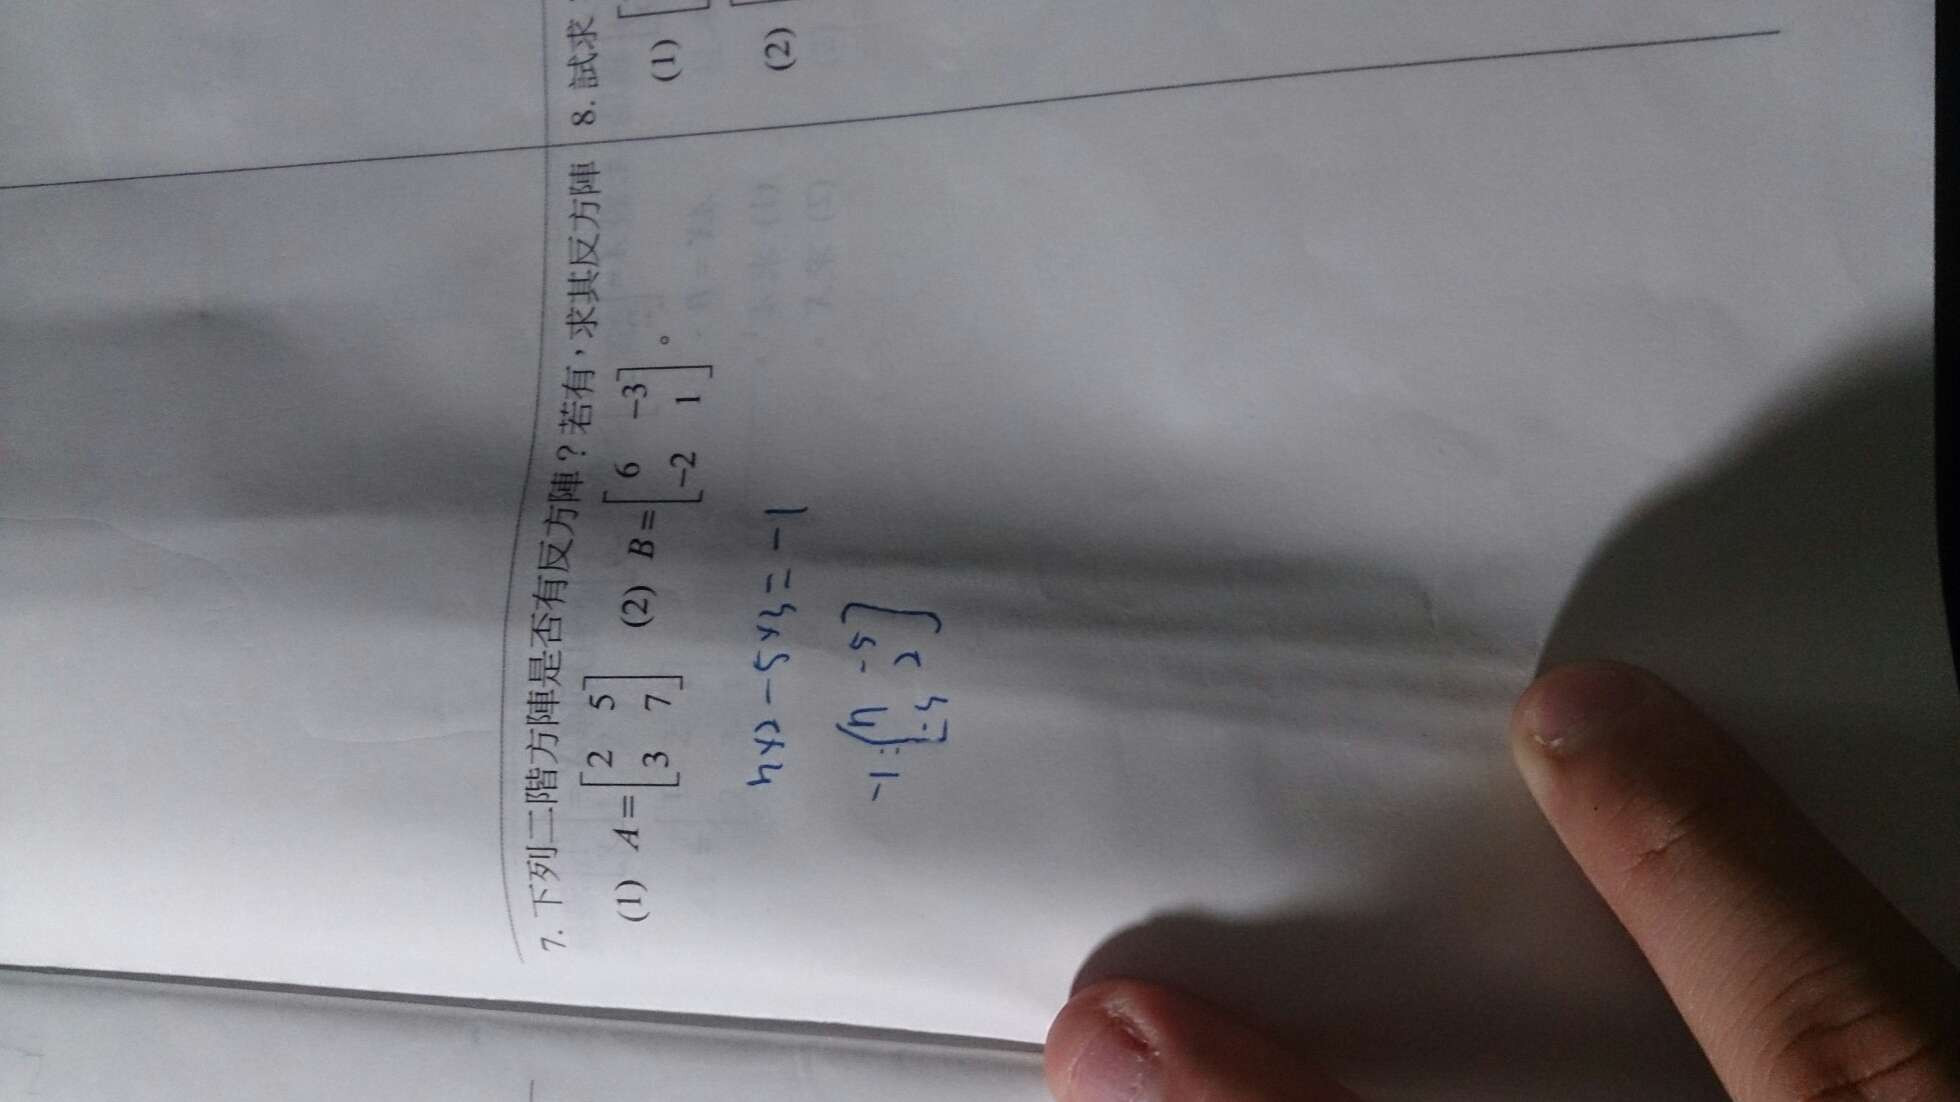 7. 下列二階方陣是否有反方陣？若有，求其反方陣
(1) A = [2 5
3 7] (2) B = [6 -3
-2 1]。
7×2-5×3=-1
-1 [7 -5
-3 2]
8. 試求
(1)
(2)